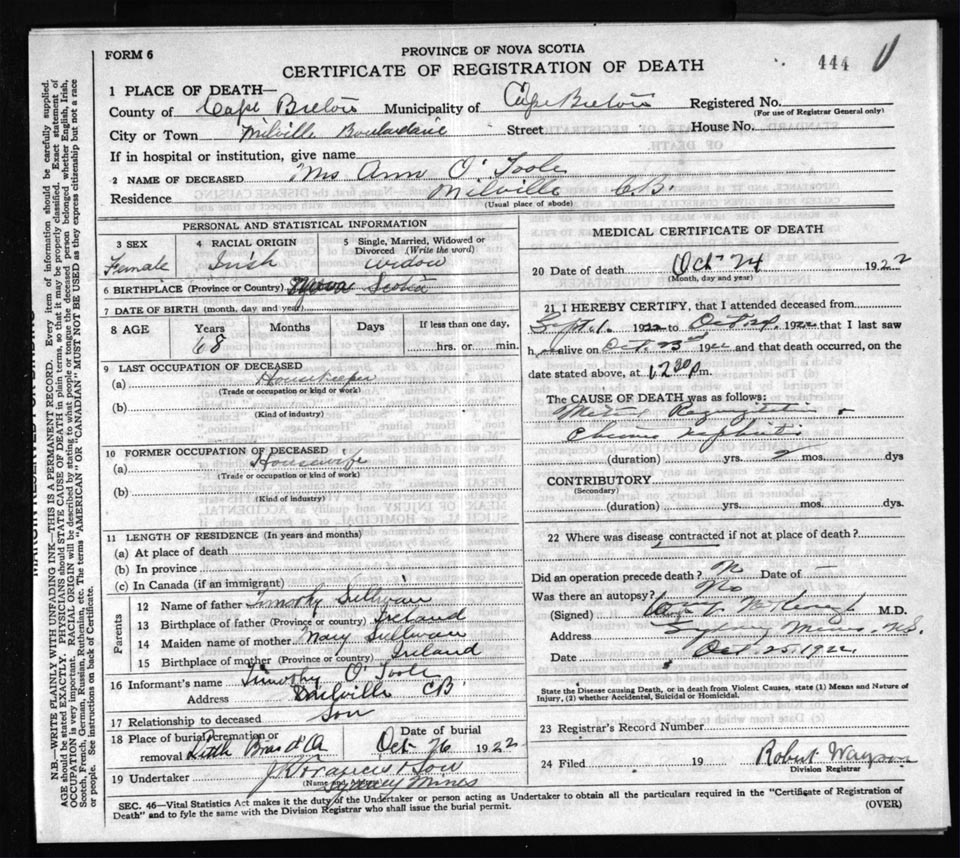 FORM 6
PROVINCE OF NOVA SCOTIA
CERTIFICATE OF REGISTRATION OF DEATH
444
1 PLACE OF DEATH—
County of Cape Breton Municipality of Cape Breton Registered No.
(For use of Registrar General only)
City or Town Milville Boulardarie Street House No.
If in hospital or institution, give name
2 NAME OF DECEASED Mrs Ann O'Toole
Residence Milville C.B.
(Usual place of abode)
PERSONAL AND STATISTICAL INFORMATION
3 SEX Female
4 RACIAL ORIGIN Irish
5 Single, Married, Widowed or Divorced (Write the word) widow
6 BIRTHPLACE (Province or Country) Nova Scotia
7 DATE OF BIRTH (month, day and year)
8 AGE Years Months Days If less than one day,
68 hrs. or min.
9 LAST OCCUPATION OF DECEASED
(a) Housekeeper
(Trade or occupation or kind or work)
(b)
(Kind of industry)
10 FORMER OCCUPATION OF DECEASED
(a) Housewife
(Trade or occupation or kind or work)
(b)
(Kind of industry)
11 LENGTH OF RESIDENCE (In years and months)
(a) At place of death
(b) In province
(c) In Canada (if an immigrant)
Parents
12 Name of father Timothy Sullivan
13 Birthplace of father (Province or country) Ireland
14 Maiden name of mother Mary Sullivan
15 Birthplace of mother (Province or country) Ireland
16 Informant's name Timothy O'Toole
Address Milville CB.
17 Relationship to deceased Son
18 Place of burial, cremation or removal Little Bras d'Or
Date of burial Oct 26 1922
19 Undertaker J Francis & Son
(Name and address)
Sydney Mines
MEDICAL CERTIFICATE OF DEATH
20 Date of death Oct 24 1922
(Month, day and year)
21 I HEREBY CERTIFY, that I attended deceased from
Sept. 1. 1922 to Oct. 24. 1922 that I last saw
h er alive on Oct. 23rd 1922 and that death occurred, on the
date stated above, at 12 30 p.m.
The CAUSE OF DEATH was as follows:
Mitral Regurgitation &
Chronic nephritis
(duration) yrs. 2 mos. dys
CONTRIBUTORY
(Secondary)
(duration) yrs. mos. dys.
22 Where was disease contracted if not at place of death?
Did an operation precede death? No Date of —
Was there an autopsy? No
(Signed) M.D.
Address Sydney Mines, N.S.
Date Oct. 25. 1922
State the Disease causing Death, or in death from Violent Causes, state (1) Means and Nature of
Injury, (2) whether Accidental, Suicidal or Homicidal.
23 Registrar's Record Number
24 Filed 19 Robert
Division Registrar
SEC. 46—Vital Statistics Act makes it the duty of the Undertaker or person acting as Undertaker to obtain all the particulars required in the "Certificate of Registration of
Death" and to fyle the same with the Division Registrar who shall issue the burial permit. (OVER)
MARGIN RESERVED FOR BINDING
N.B—WRITE PLAINLY WITH UNFADING INK—THIS IS A PERMANENT RECORD. Every item of information should be carefully supplied.
AGE should be stated EXACTLY. PHYSICIANS should STATE CAUSE OF DEATH in plain terms, so that it may be properly classified. Exact statement of
OCCUPATION is very important. RACIAL ORIGIN will be described by stating to what people or tongue the deceased person belonged, whether English, Irish,
Scotch, French, German, Russian, Ruthenian, etc. The terms "AMERICAN" OR "CANADIAN" MUST NOT BE USED as they express citizenship but not a race
or people. See instructions on back of Certificate.